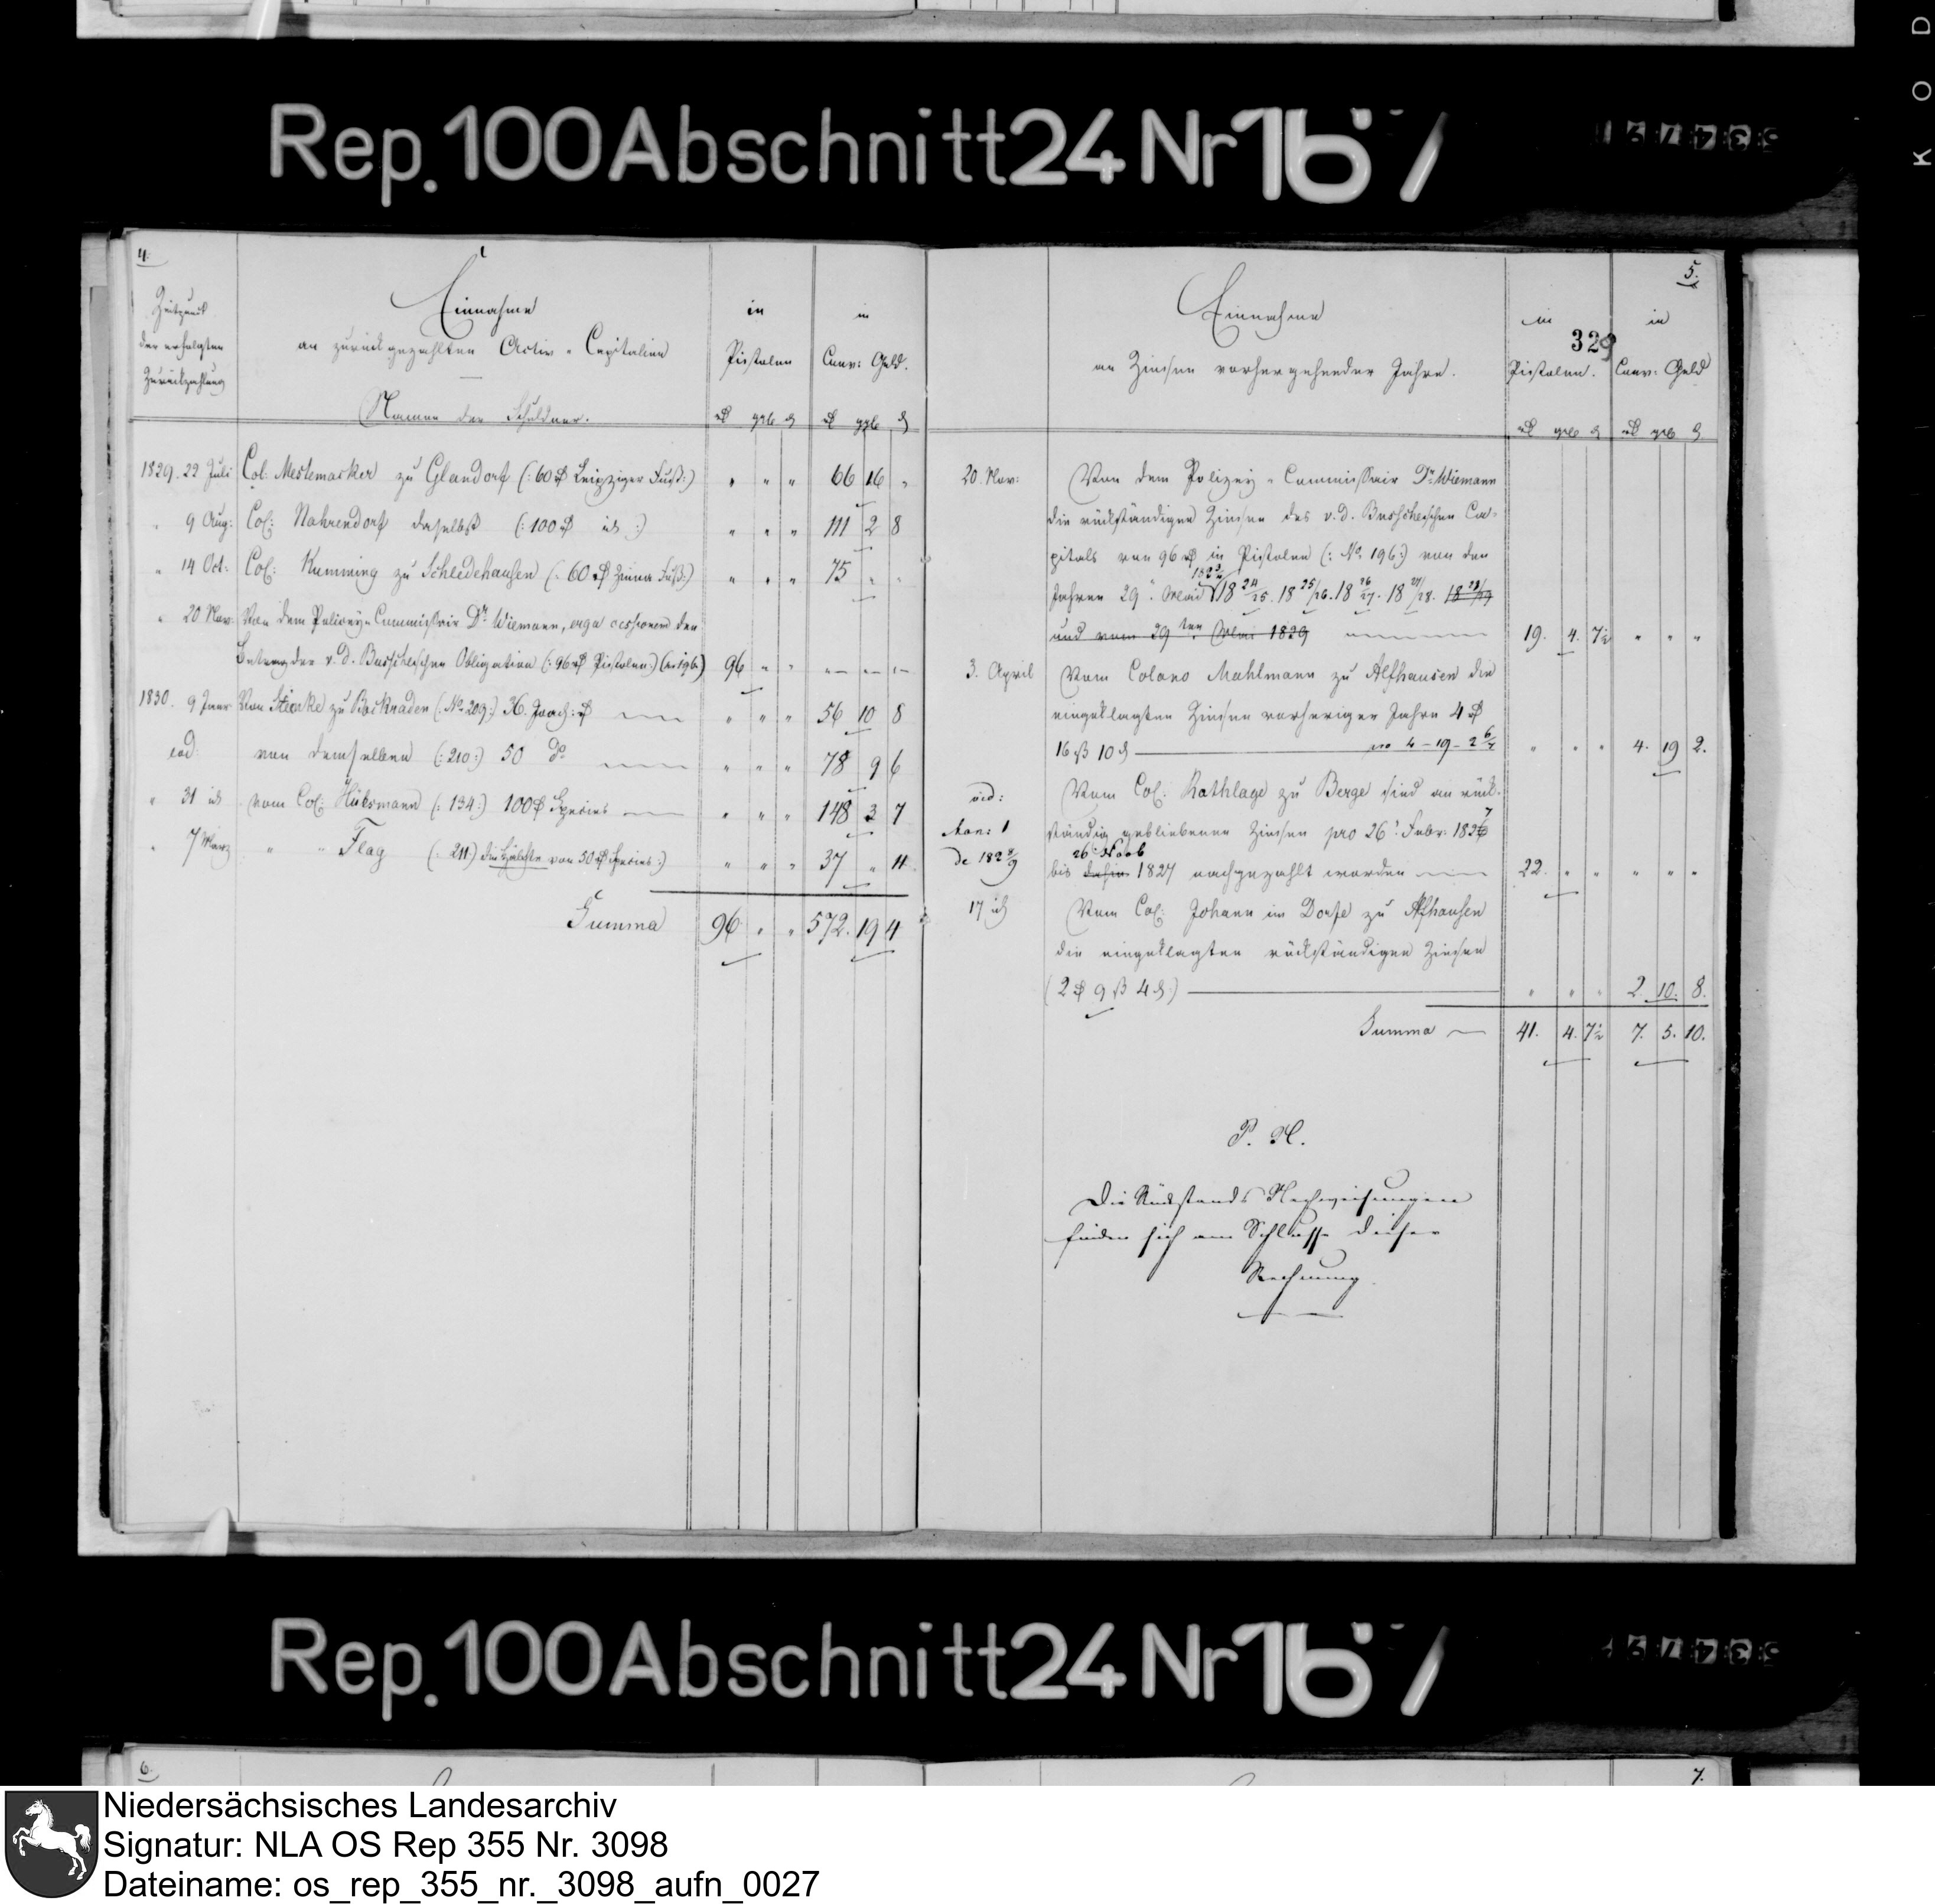 KOD
Rep. 100 Abschnitt 24 Nr 167
53479
4.
Zeitpunct
der erfolgten
Zurückzahlung
Einnahme
an zurückgezahlten Activ-Capitalien
Namen der Schuldner.
in
Pistolen
in
Conv: Geld.
1829. 22 Juli Col. Mestemacker zu Glandorf (: 60 rℓ Leipziger Fuß:) " " " 66 16 "
" 9 Aug: Col: Nahrendorf daselbst (: 100 rℓ id :) " " " 111 2 8
" 14 Oct: Col: Kumming zu Schledehausen (: 60 rℓ Zinna Fuß:) " " " 75 " "
" 20 Nov: Von dem Polizey-Commissair Dr. Wiemann, erga cessionem den
Betrag der v. d. Busscheschen Obligation (: 96 rℓ Pistolen:) (No 196.) 96 " " " " "
1830. 9 Janr Von Stienke zu Bockraden (: No 209:) 36. " " " 56 10 8
eod: von demselben (: 210:) 50 do " " " 78 9 6
" 31 id vom Col: Hülsmann (: 134:) 100 rℓ Species " " " 148 3 7
" 7 März " " Flag (: 211:) die Hälfte von 50 rℓ Species:) " " " 37 " 11
Summa 96 " " 572. 19 4
5.
329
Einnahme
an Zinsen vorhergehender Jahre.
in
Pistolen.
in
Conv: Geld
20. Nov: Von dem Polizey-Commissair Dr. Wiemann
die rückständigen Zinsen des v. d. Busscheschen Ca-
pitals von 96 rℓ in Pistolen (: No 196:) von den
1823/4
Jahren 29. 18 24/25. 18 25/26. 18 26/27. 18 27/28. 18 28/29
und vom 29ten 1829 19. 4. 7½ " " "
3. April Vom Colono Mahlmann zu Alfhausen die
eingeklagten Zinsen voriger Jahre 4 rℓ
16 ß 10 ₰ 4-19-2 6/7 " " " 4. 19 2.
eod: Vom Col: Rathlage zu Berge sind an rück-
ständig gebliebenen Zinsen pro 26t Febr: 1826 7
de 1828/9 26t
bis dahin 1827 nachgezahlt worden 22. " " " " "
17 id Vom Col: Johann im Dorfe zu Alfhausen
die eingeklagten rückständigen Zinsen
(2 rℓ 9 ß 4 ₰:) " " " 2. 10. 8.
Summa 41. 4. 7½ 7. 5. 10.
P. N.
Die Rückstands Nachweisungen
finden sich am Schlusse dieser
Rechnung.
Rep. 100 Abschnitt 24 Nr 167
53479
6.
7.
Niedersächsisches Landesarchiv
Signatur: NLA OS Rep 355 Nr. 3098
Dateiname: os_rep_355_nr._3098_aufn_0027